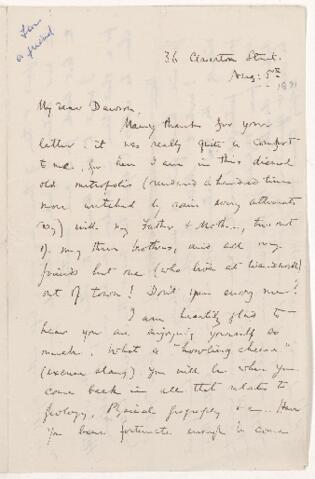 For
a friend
36 Claverton Street.
Aug: 5th
1871
My dear Dawson
Many thanks for your
letter: it was really quite a comfort
to me, for here I am in this dismal
old metropolis (rendered a hundred times
more wretched by rain every alternate
day) with my Father & Mother, two out
of my three brothers, and all my
friends but one (who lives at Wandsworth)
out of town! Don't you envy me?
I am heartily glad to
hear you are enjoying yourself so
much. What a "howling cheese"
(excuse slang) you will be when you
come back in all that relates to
Geology, Physical geography &c. Have
you been fortunate enough to come